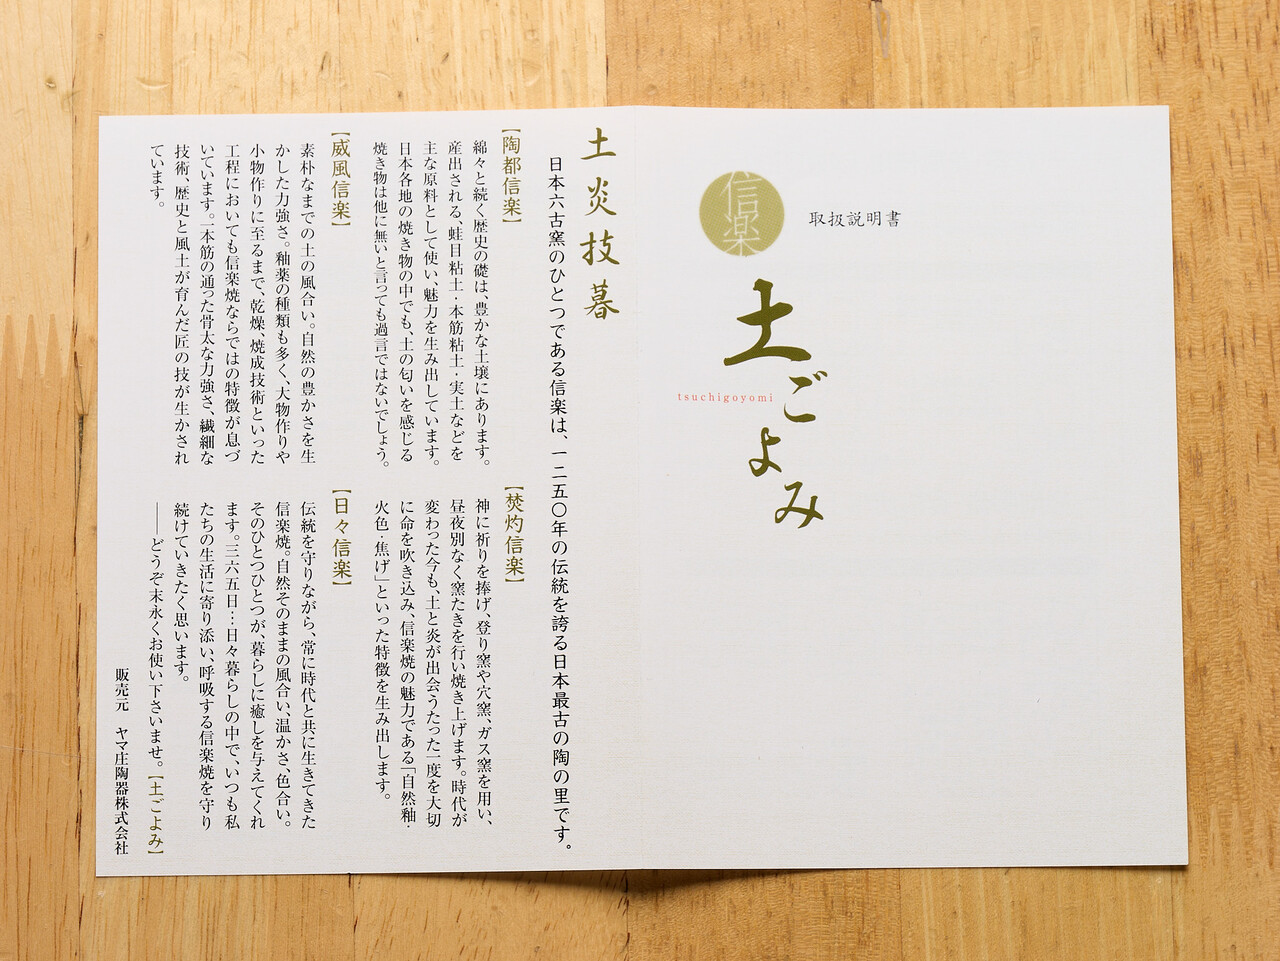 信楽
取扱説明書
土ごよみ
tsuchigoyomi
土炎技暮
日本六古窯のひとつである信楽は、一二五〇年の伝統を誇る日本最古の陶の里です。
【陶都信楽】
綿々と続く歴史の礎は、豊かな土壌にあります。
産出される、蛙目粘土・本筋粘土・実土などを
主な原料として使い、魅力を生み出しています。
日本各地の焼き物の中でも、土の匂いを感じる
焼き物は他に無いと言っても過言ではないでしょう。
【威風信楽】
素朴なまでの土の風合い。自然の豊かさを生
かした力強さ。釉薬の種類も多く、大物作りや
小物作りに至るまで、乾燥、焼成技術といった
工程においても信楽焼ならではの特徴が息づ
いています。一本筋の通った骨太な力強さ、繊細な
技術、歴史と風土が育んだ匠の技が生かされ
ています。
【焚灼信楽】
神に祈りを捧げ、登り窯や穴窯、ガス窯を用い、
昼夜別なく窯たきを行い焼き上げます。時代が
変わった今も、土と炎が出会うたった一度を大切
に命を吹き込み、信楽焼の魅力である「自然釉・
火色・焦げ」といった特徴を生み出します。
【日々信楽】
伝統を守りながら、常に時代と共に生きてきた
信楽焼。自然そのままの風合い、温かさ、色合い。
そのひとつひとつが、暮らしに癒しを与えてくれ
ます。三六五日…日々暮らしの中で、いつも私
たちの生活に寄り添い、呼吸する信楽焼を守り
続けていきたく思います。
――どうぞ末永くお使い下さいませ。【土ごよみ】
販売元　ヤマ庄陶器株式会社